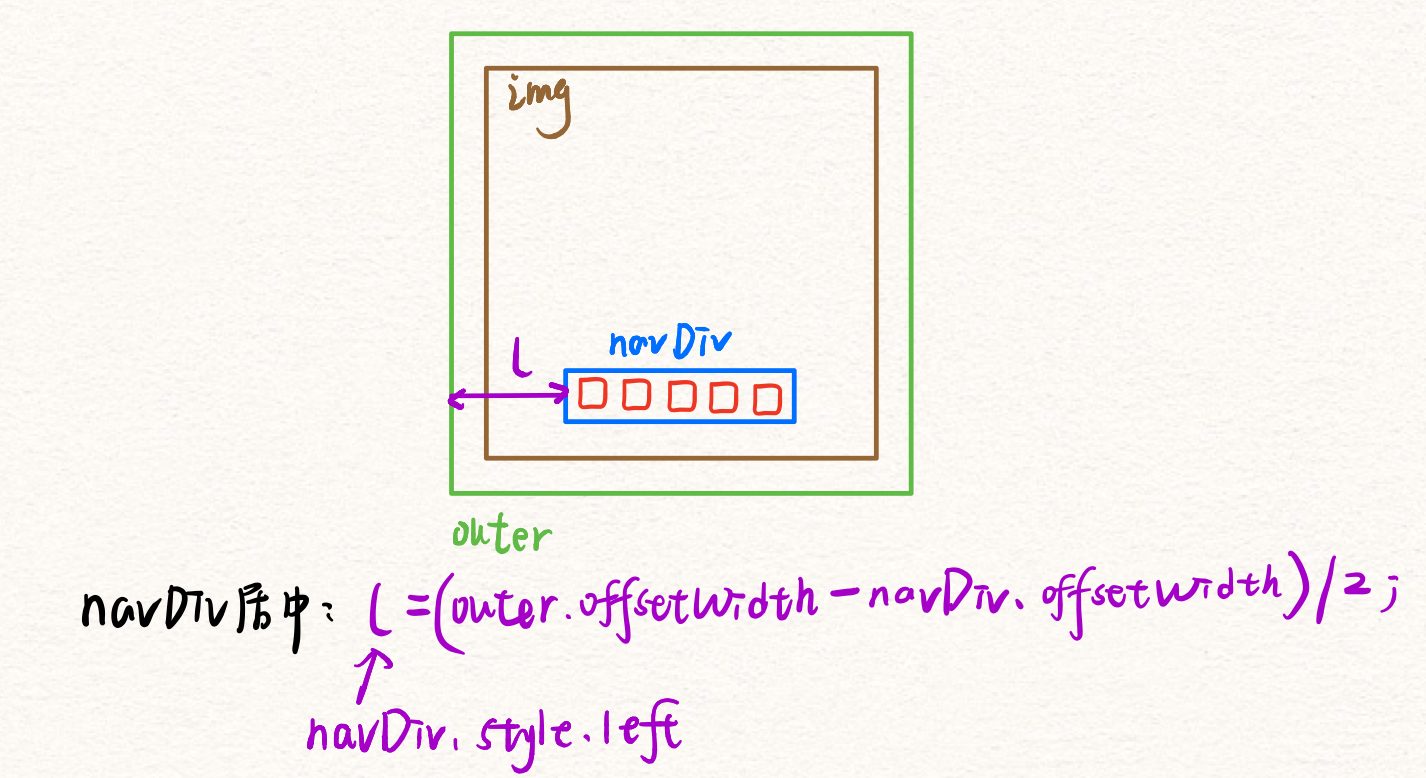 img
navDiv
l
outer
navDiv居中: l =(outer.offsetWidth-navDiv.offsetWidth)/2;
navDiv.style.left